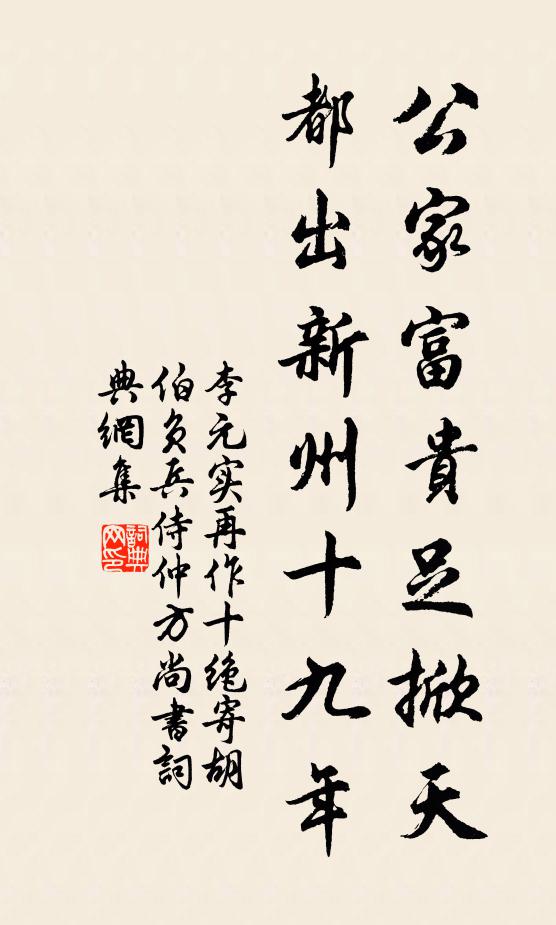 公家富貴足掀天
都出新州十九年
李元实再作十绝寄胡
伯负兵侍仲方尚書詞
典網集
詞典網印